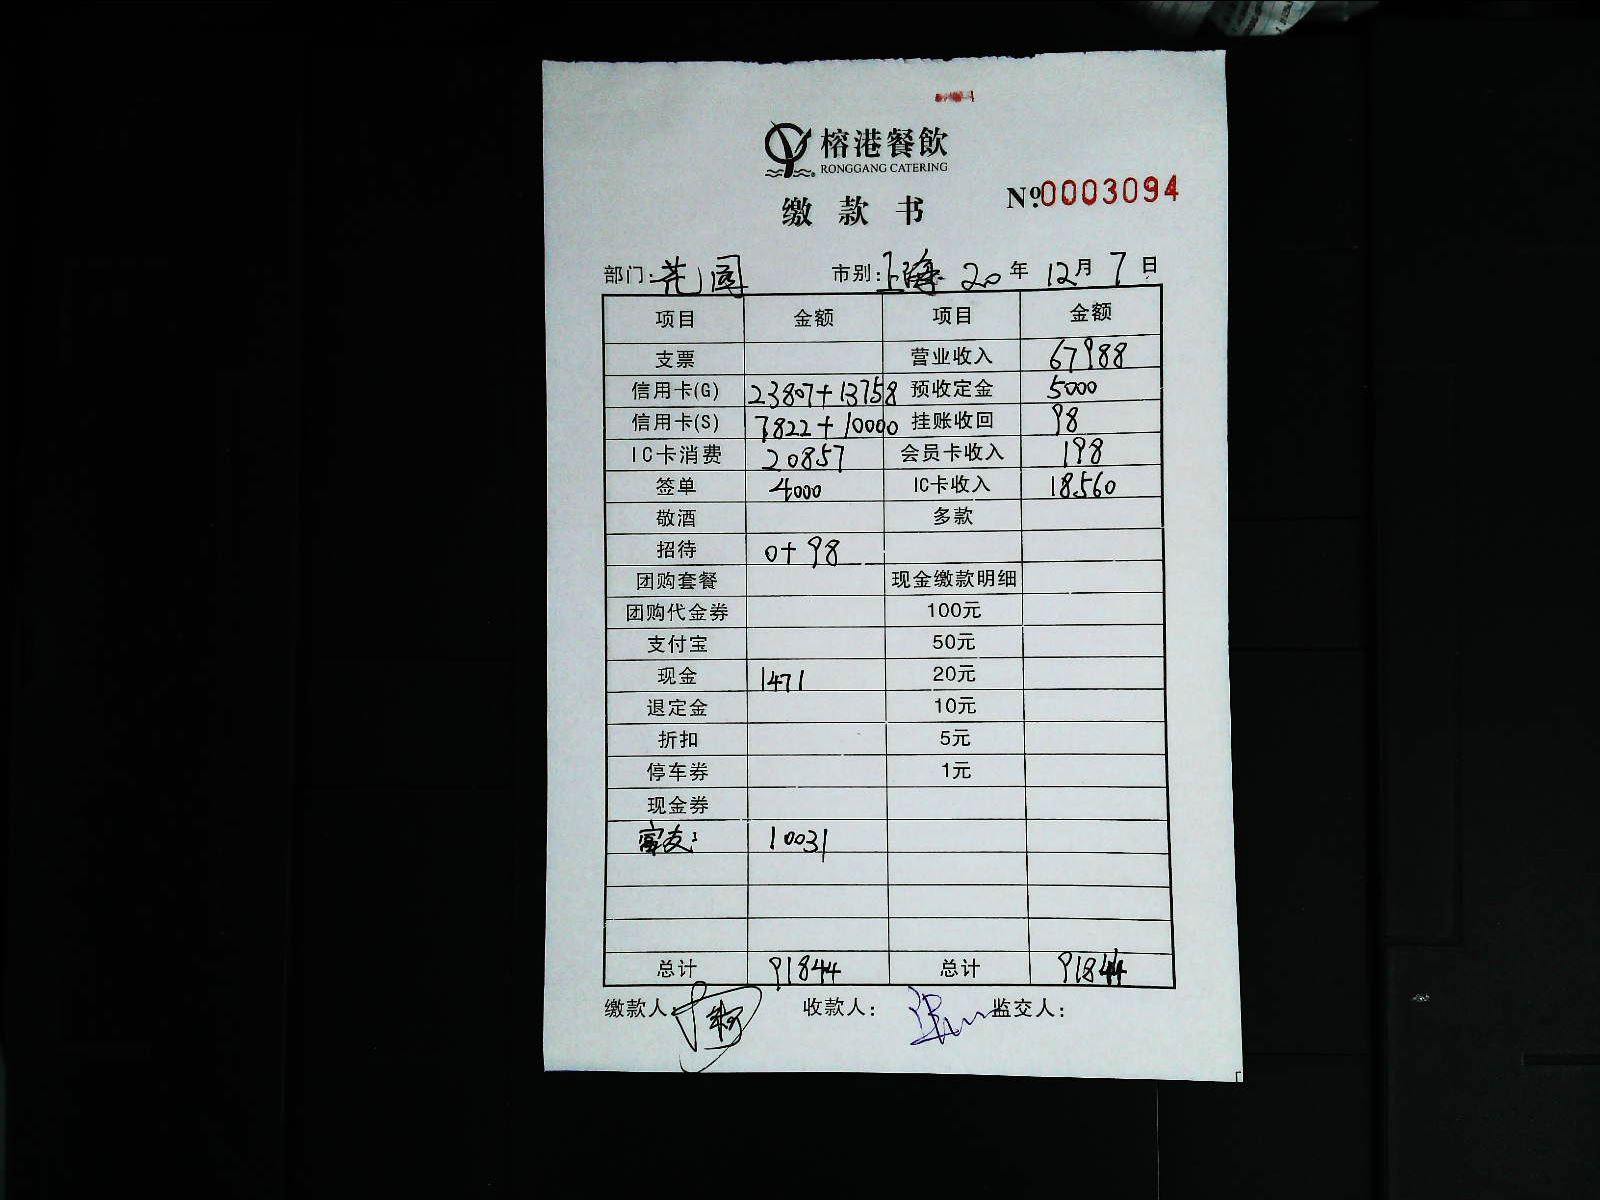 榕港餐飲
RONGGANG CATERING
缴款书
Nº.0003094
部门:花园 市别:上海 20年 12月 7日
项目 金额 项目 金额
支票 营业收入 67988
信用卡(G) 23807+13758 预收定金 5000
信用卡(S) 7822+10000 挂账收回 98
IC卡消费 20857 会员卡收入 198
签单 4000 IC卡收入 18560
敬酒 多款
招待 0+98
团购套餐 现金缴款明细
团购代金券 100元
支付宝 50元
现金 1471 20元
退定金 10元
折扣 5元
停车券 1元
现金券
富友: 10031
总计 91844 总计 91844
缴款人 收款人: 监交人: